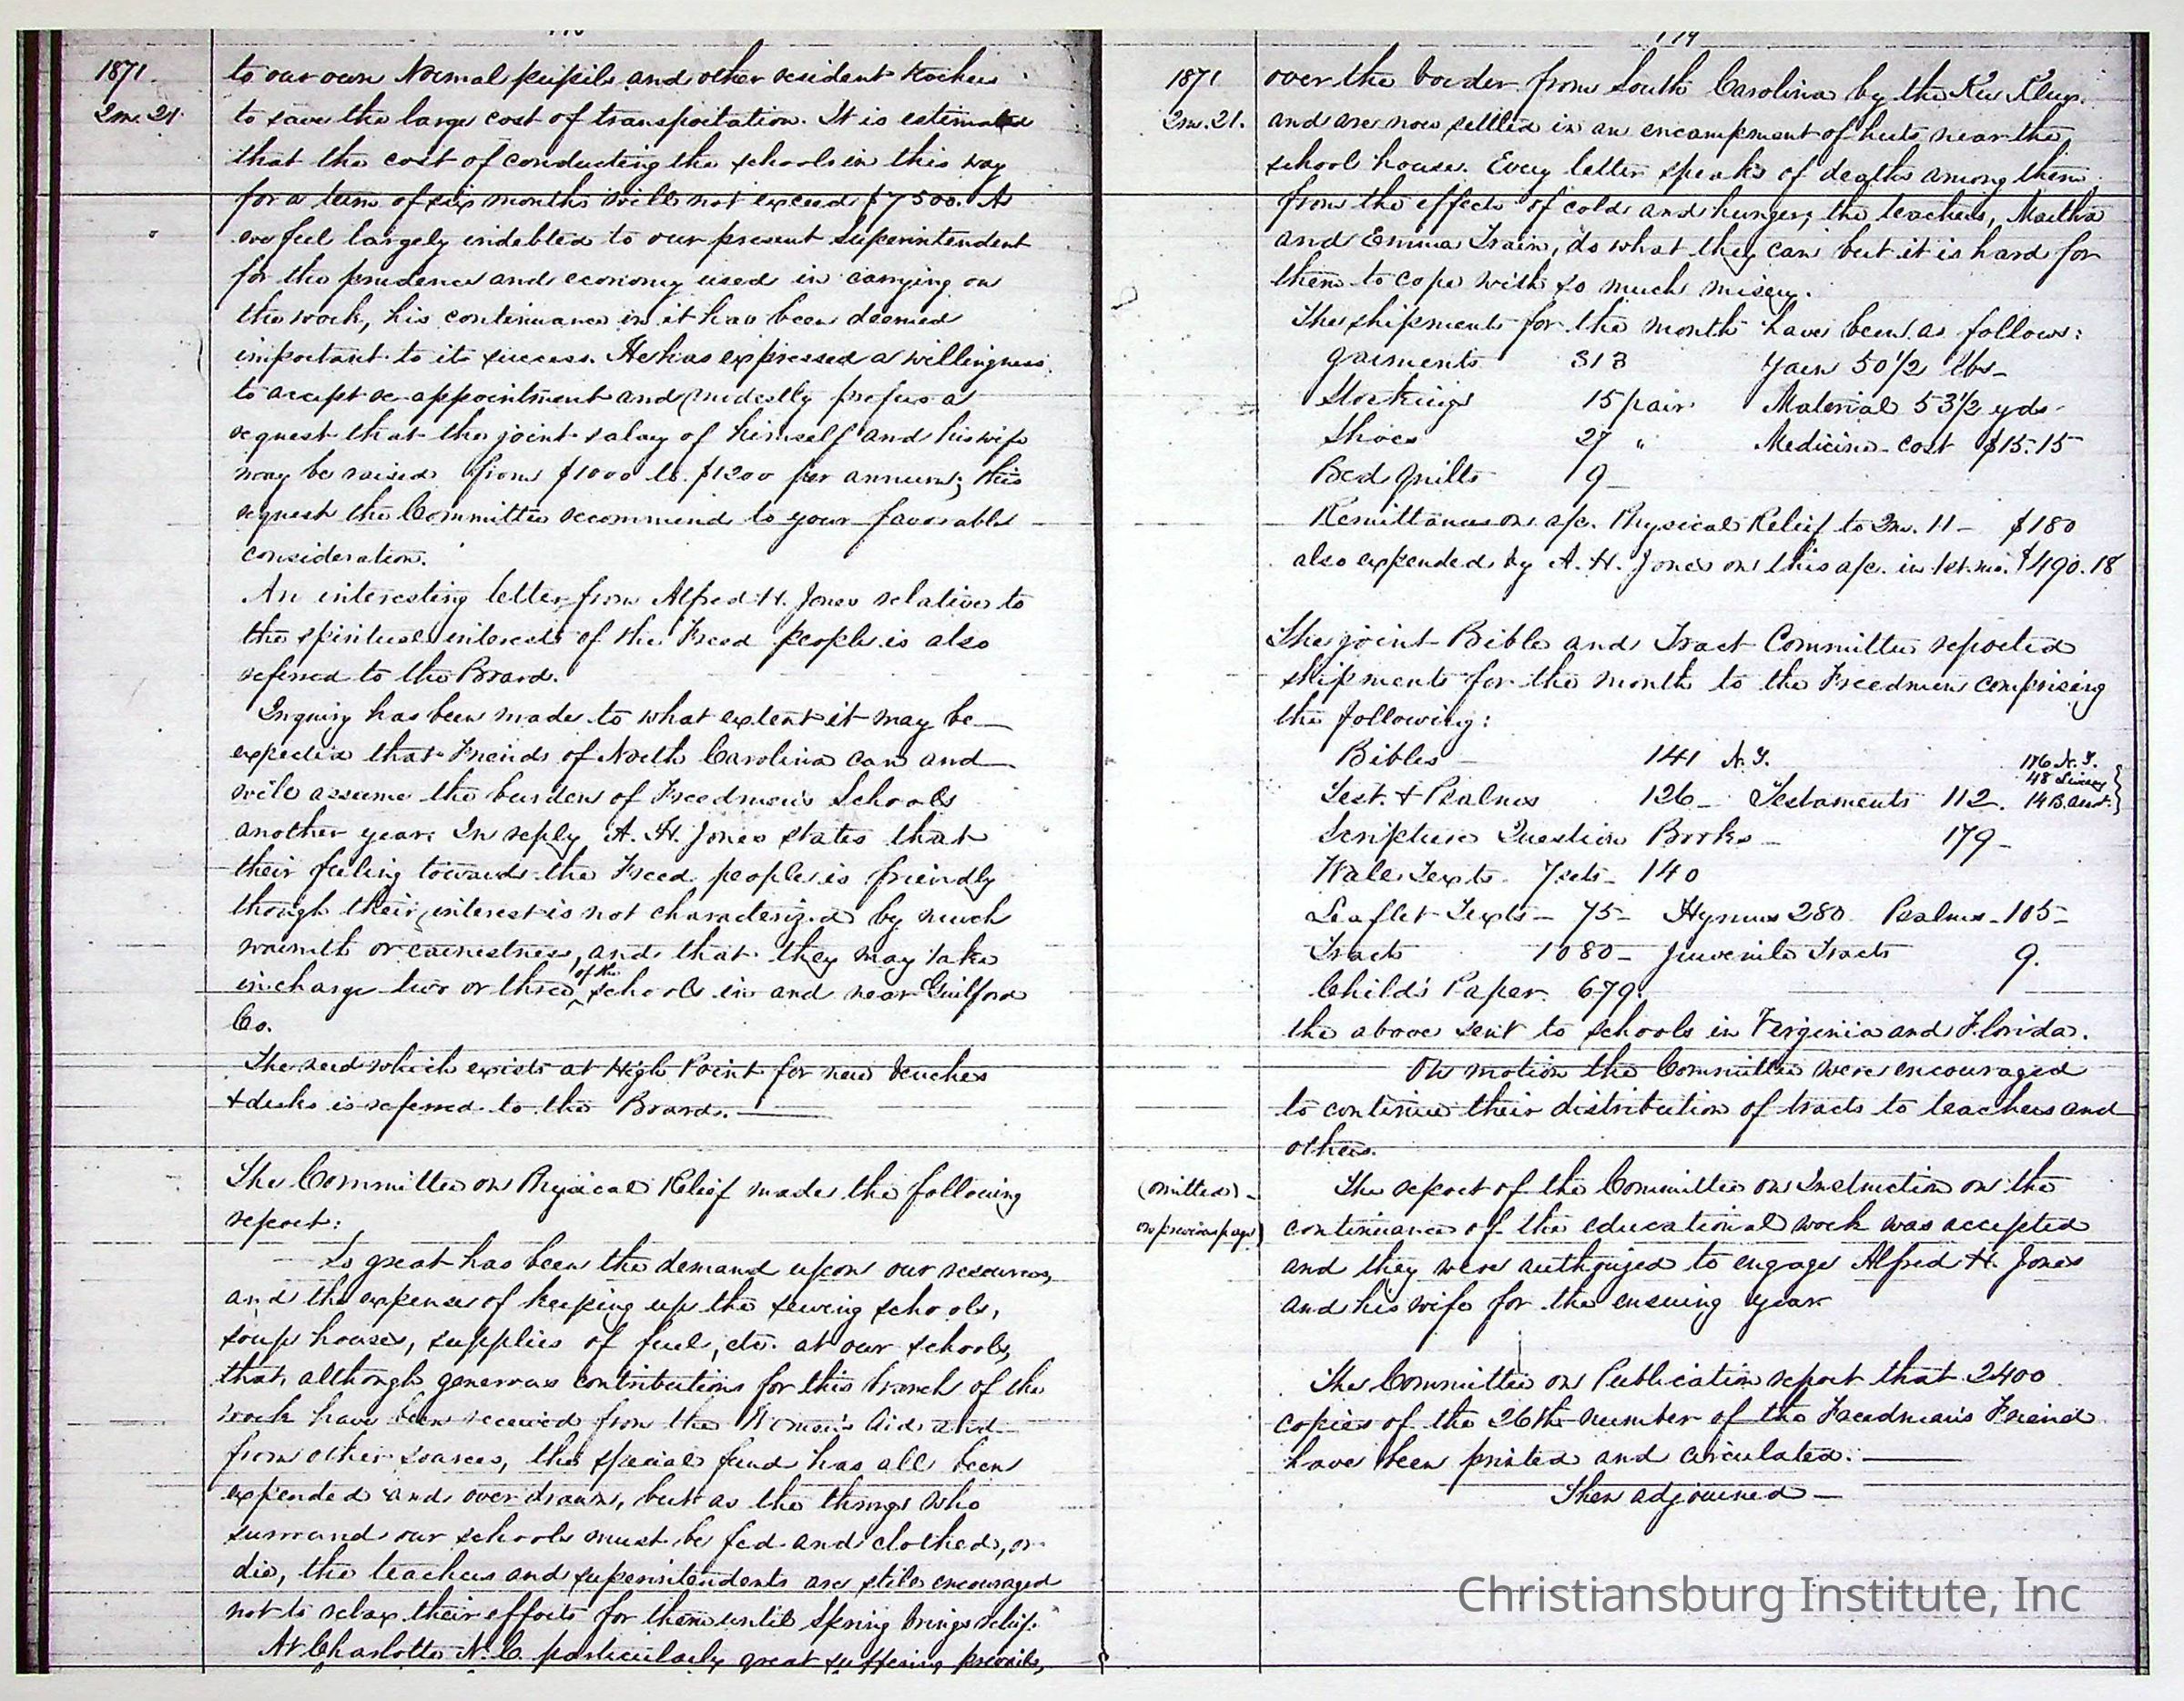 1871.
2m. 21.
to our own Normal pupils and other resident teachers
to save the large cost of transportation. It is estimated
that the cost of conducting the schools in this way
for a term of six months will not exceed $7500. As
we feel largely indebted to our present Superintendent
for the prudence and economy used in carrying on
the work, his continuance in it has been deemed
important to its success. He has expressed a willingness
to accept re-appointment and modestly prefers a
request that the joint salary of himself and his wife
may be raised from $1000 to $1200 per annum; this
request the Committee recommend to your favorable
consideration.
An interesting letter from Alfred H. Jones relative to
the spiritual interests of the Freed people is also
referred to the Board.
Inquiry has been made to what extent it may be
expected that Friends of North Carolina can and
will assume the burden of Freedmen's Schools
another year. In reply A. H. Jones states that
their feeling towards the Freed people is friendly
though their interest is not characterized by much
warmth or earnestness, and that they may take
in charge two or three of the schools in and near Guilford
Co.
The need which exists at High Point for new benches
& desks is referred to the Board.
The Committee on Physical Relief made the following
report:
So great has been the demand upon our resources,
and the expense of keeping up the sewing schools,
soup houses, supplies of fuel, etc. at our schools,
that, although generous contributions for this branch of the
work have been received from the Women's Aid and
from other sources, the special fund has all been
expended and over drawn, but as the throngs who
surround our schools must be fed and clothed, or
die, the teachers and superintendents are still encouraged
not to relax their efforts for them until Spring brings relief.
At Charlotte N.C. particularly great suffering prevails,
119
1871
2m. 21.
over the border from South Carolina by the Ku Klux.
and are now settled in an encampment of huts near the
school house. Every letter speaks of deaths among them
from the effects of cold and hunger; the teachers, Martha
and Emma Train, do what they can but it is hard for
them to cope with so much misery.
The shipments for the month have been as follows:
Garments 313 Yarn 50 1/2 lbs
Stockings 15 pair Material 53 1/2 yds
Shoes 27 " Medicine cost $15.15
Bed quilts 9
Remittances on a/c. Physical Relief to 2m. 11 - $180
also expended by A. H. Jones on this a/c. in 1st. mo. $490.18
The joint Bible and Tract Committee reported
shipments for the month to the Freedmen comprising
the following:
Bibles - 141 N.Y. 176 N.Y.
Test. & Psalms 126 - Testaments 112. 14 B. Aux.
Scripture Question Books - 179 -
Wall Texts. 7 sets - 140
Leaflet Texts - 75 - Hymns 280 Psalms - 105 -
Tracts 1080 - Juvenile Tracts 9.
Child's Paper. 679.
the above sent to schools in Virginia and Florida.
On motion the Committee were encouraged
to continue their distribution of tracts to teachers and
others.
(omitted)
on previous page)
The report of the Committee on Instruction on the
continuance of the educational work was accepted
and they were authorized to engage Alfred H. Jones
and his wife for the ensuing year
The Committee on Publication report that 2400
copies of the 26th number of the Freedman's Friend
have been printed and circulated.
Then adjourned -
Christiansburg Institute, Inc